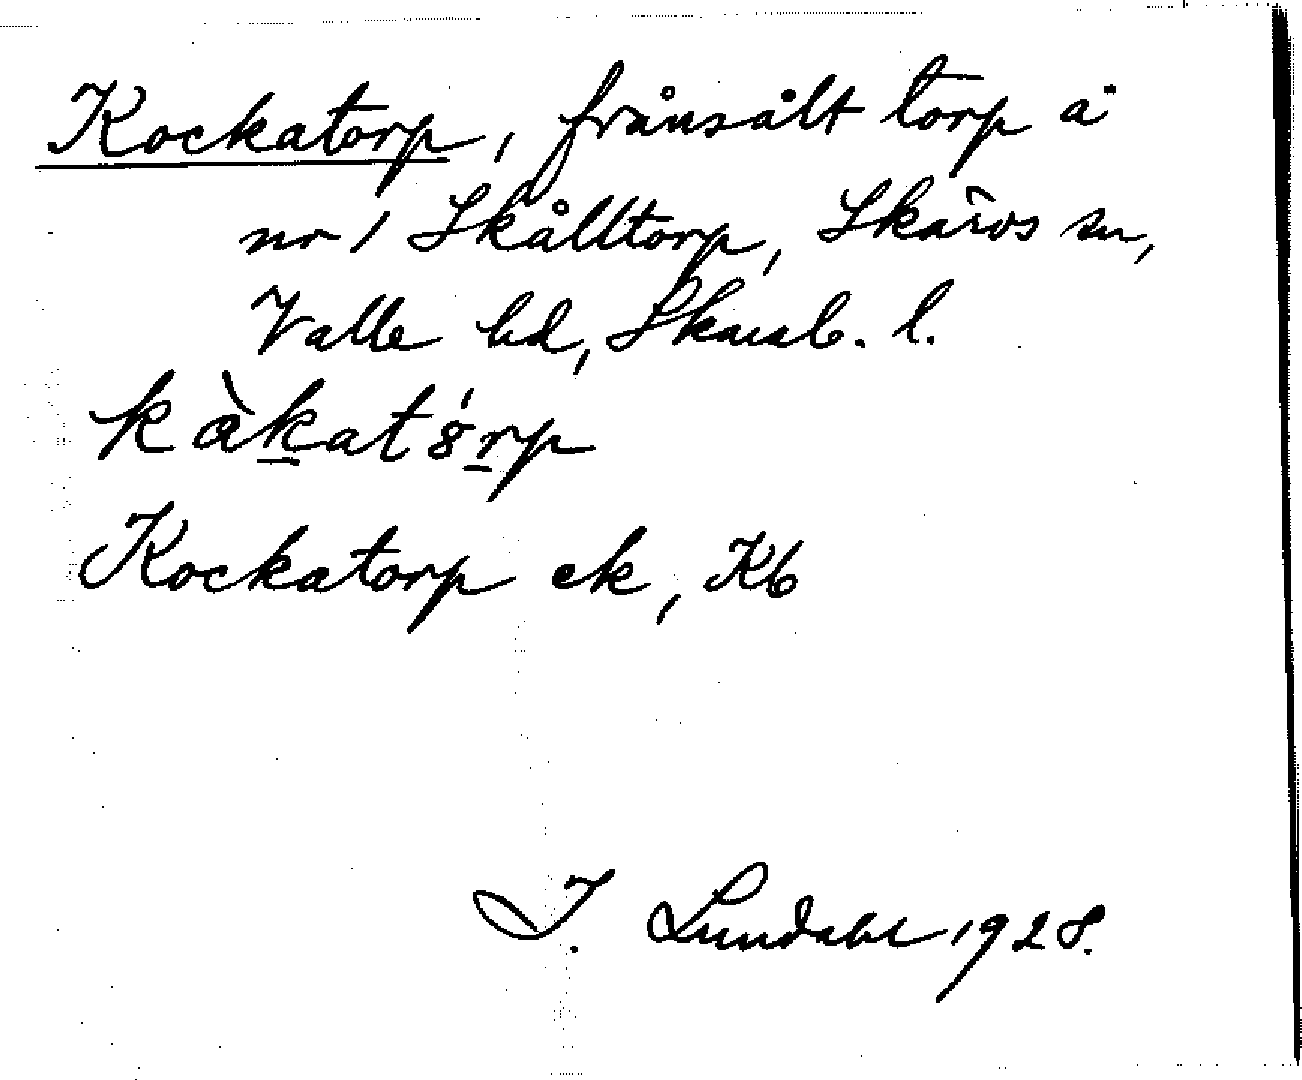 Kockatorp, frånsålt torp å
nr 1 Skålltorp, Skärvs sn,
Valle hd, Skarab. l.
kàkat8́rp
Kockatorp ek, Kb
I. Lundahl 1928.